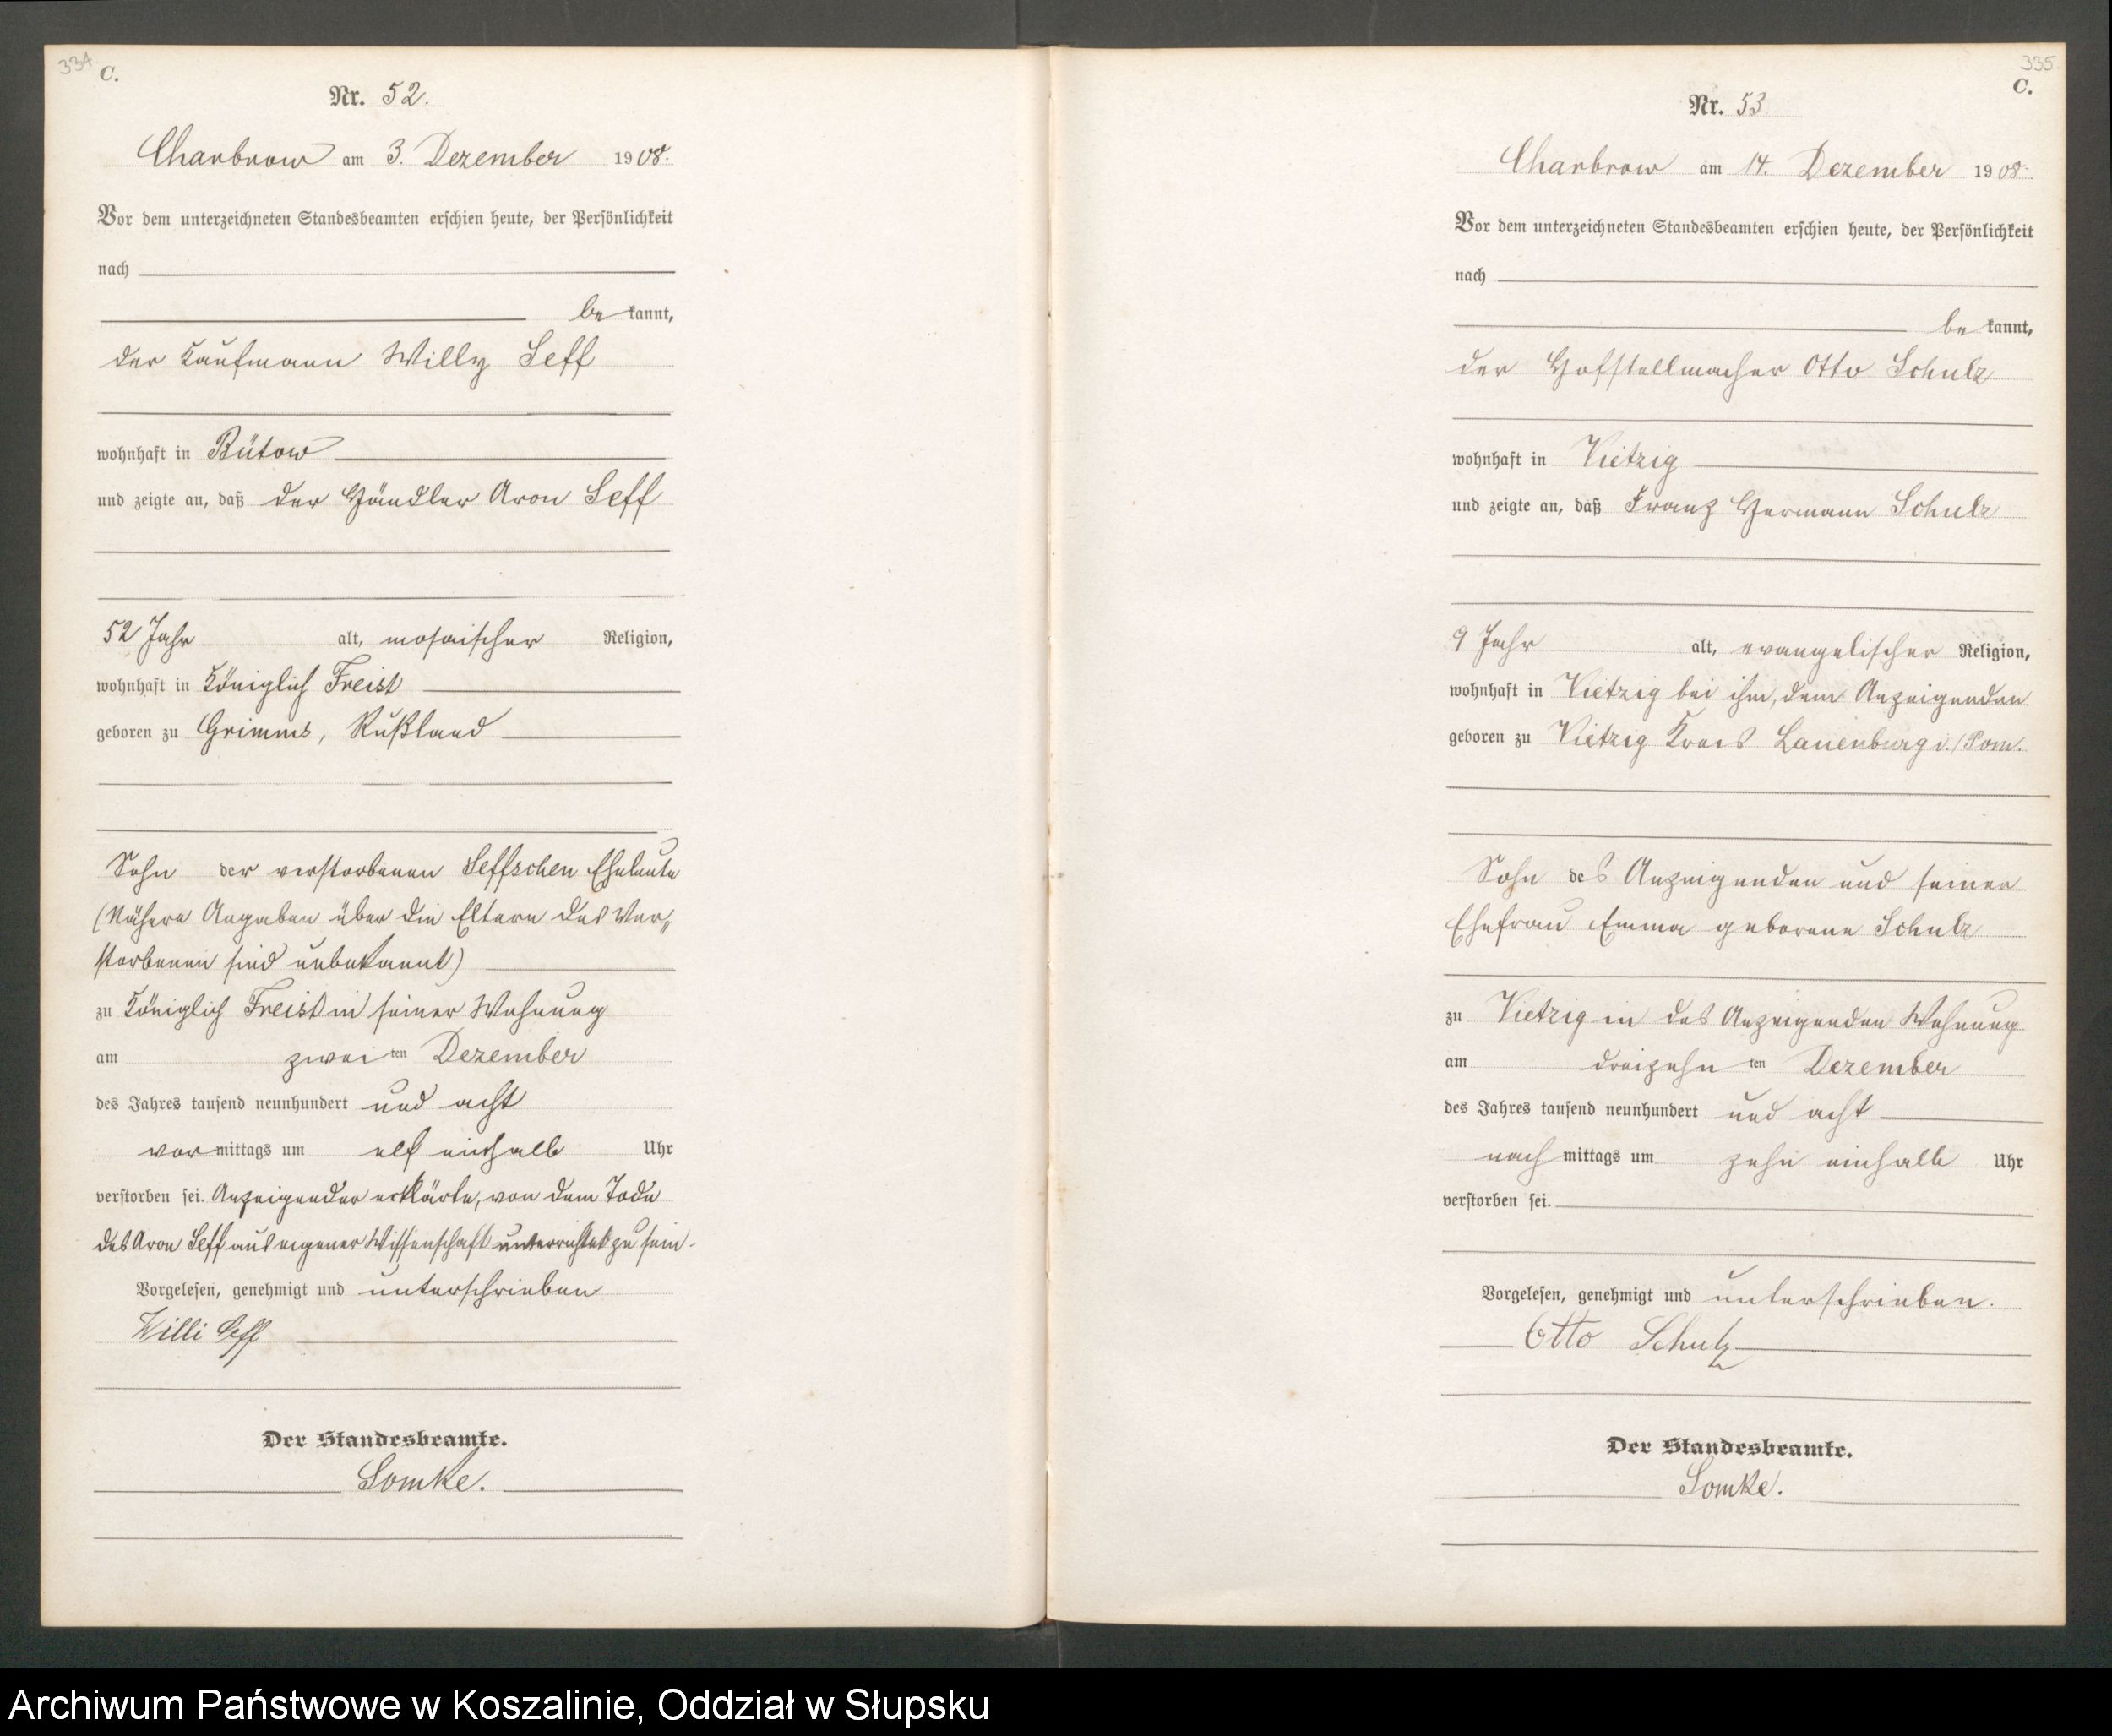 334
C.
Nr. 52.
Charbrow am 3. Dezember 1908.
Vor dem unterzeichneten Standesbeamten erschien heute, der Persönlichkeit
nach
be kannt,
der Kaufmann Willy Seff
wohnhaft in Bütow
und zeigte an, daß der Händler Aron Seff
52 Jahr alt, mosaischer Religion,
wohnhaft in Königlich Freist
geboren zu Grimms, Rußland
Sohn der verstorbenen Seffschen Eheleute
(Nähere Angaben über die Eltern des Ver„
storbenen sind unbekannt)
zu Königlich Freist in seiner Wohnung
am zwei ten Dezember
des Jahres tausend neunhundert und acht
vor mittags um elf einhalb Uhr
verstorben sei. Anzeigender erklärte, von dem Tode
des Aron Seff aus eigener Wissenschaft unterrichtet zu sein.
Vorgelesen, genehmigt und unterschrieben
Willi Seff
Der Standesbeamte.
Somke.
335.
C.
Nr. 53.
Charbrow am 14. Dezember 1908.
Vor dem unterzeichneten Standesbeamten erschien heute, der Persönlichkeit
nach
be kannt,
der Hofstellmacher Otto Schulz
wohnhaft in Vietzig
und zeigte an, daß Franz Hermann Schulz
9 Jahr alt, evangelischer Religion,
wohnhaft in Vietzig bei ihm, dem Anzeigenden
geboren zu Vietzig Kreis Lauenburg i./Pom.
Sohn des Anzeigenden und seiner
Ehefrau Emma geborene Schulz
zu Vietzig in des Anzeigenden Wohnung
am dreizehn ten Dezember
des Jahres tausend neunhundert und acht
nach mittags um zehn einhalb Uhr
verstorben sei.
Vorgelesen, genehmigt und unterschrieben.
Otto Schulz
Der Standesbeamte.
Somke.
Archiwum Państwowe w Koszalinie, Oddział w Słupsku